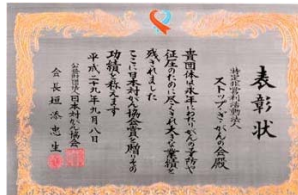 表彰状
特定非営利活動法人
ストップ・ざ・がんの会殿
貴団体は永年にわたりがんの予防や
征圧のために尽くされ大きな業績を
残されました
ここに日本対がん協会賞を贈りその
功績を称えます
平成二十九年九月八日
公益財団法人日本対がん協会
会長垣添忠生